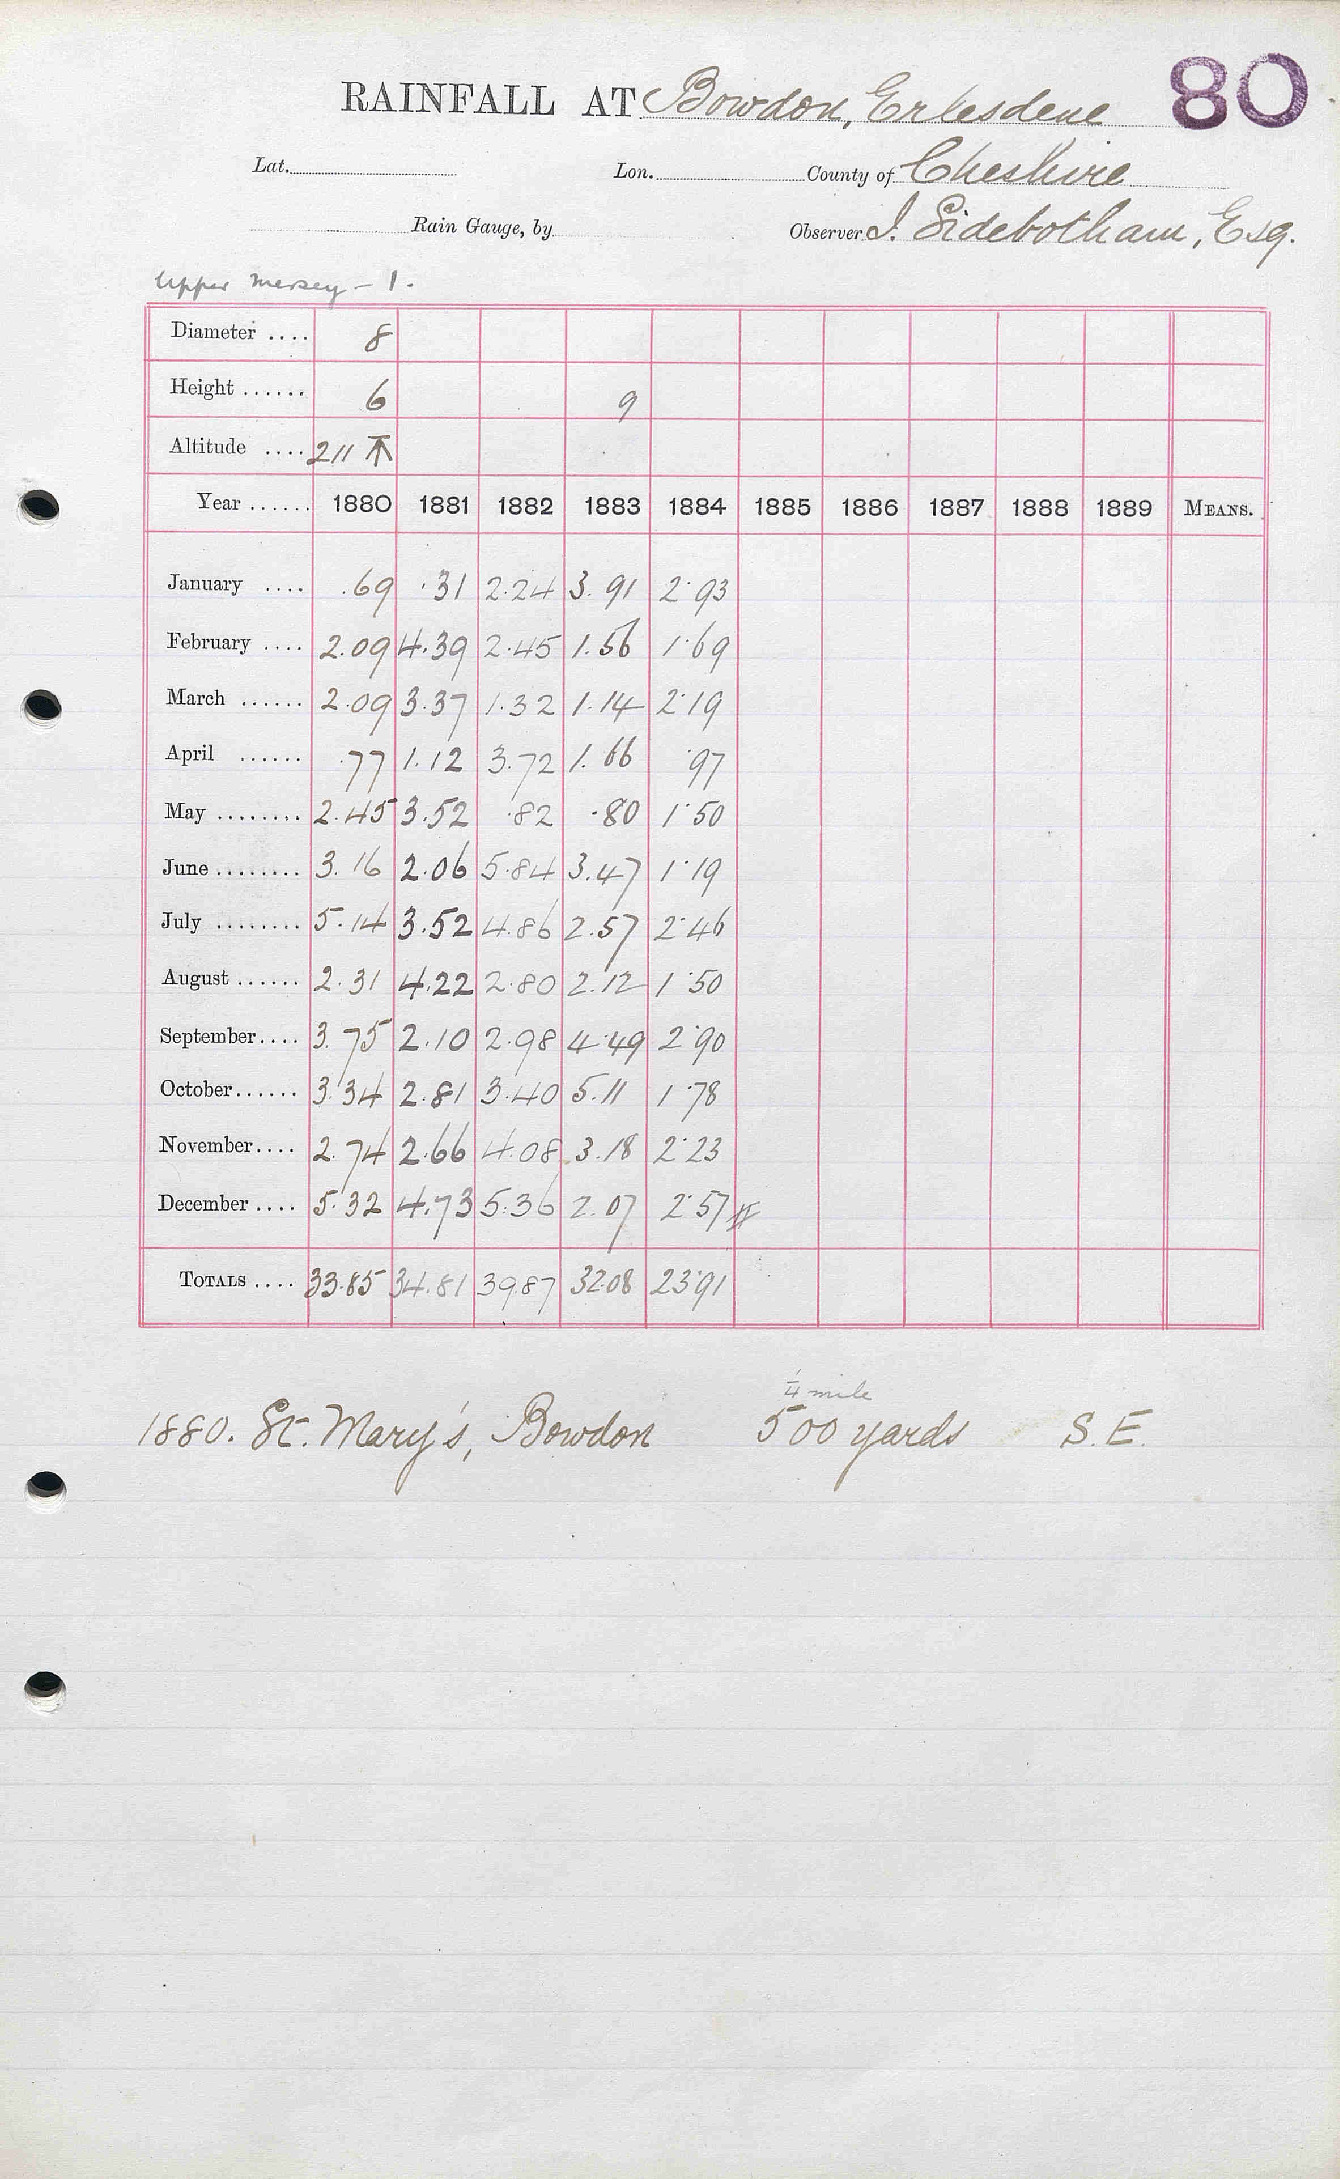 80
RAINFALL AT Bowdon, Erlesdene
Lat. Lon. County of Cheshire
Rain Gauge, by Observer J. Sidebotham, Esq.
Upper Mersey - 1.
Diameter .... 8
Height ...... 6 9
Altitude .... 211 ⊼
Year ...... 1880 1881 1882 1883 1884 1885 1886 1887 1888 1889 MEANS.
January .... .69 .31 2.24 3.91 2.93
February .... 2.09 4.39 2.45 1.56 1.69
March ...... 2.09 3.37 1.32 1.14 2.19
April ...... .77 1.12 3.72 1.66 .97
May ........ 2.45 3.52 .82 .80 1.50
June ........ 3.16 2.06 5.84 3.47 1.19
July ........ 5.14 3.52 4.86 2.57 2.46
August ...... 2.31 4.22 2.80 2.12 1.50
September.... 3.75 2.10 2.98 4.49 2.90
October...... 3.34 2.81 3.40 5.11 1.78
November.... 2.74 2.66 4.08 3.18 2.23
December .... 5.32 4.73 5.36 2.07 2.57
TOTALS .... 33.85 34.81 39.87 32.08 23.91
¼ mile
1880. St. Mary's, Bowdon 500 yards S.E.